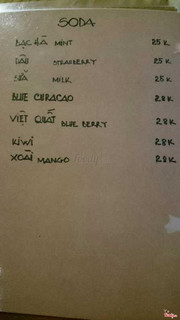 SODA
BẠC HÀ MINT 25K
DÂU STRAWBERRY 25K
SỮA MILK 25K
BLUE CURACAO 28K
VIỆT QUẤT BLUE BERRY 28K
KIWI 28K
XOÀI MANGO 28K